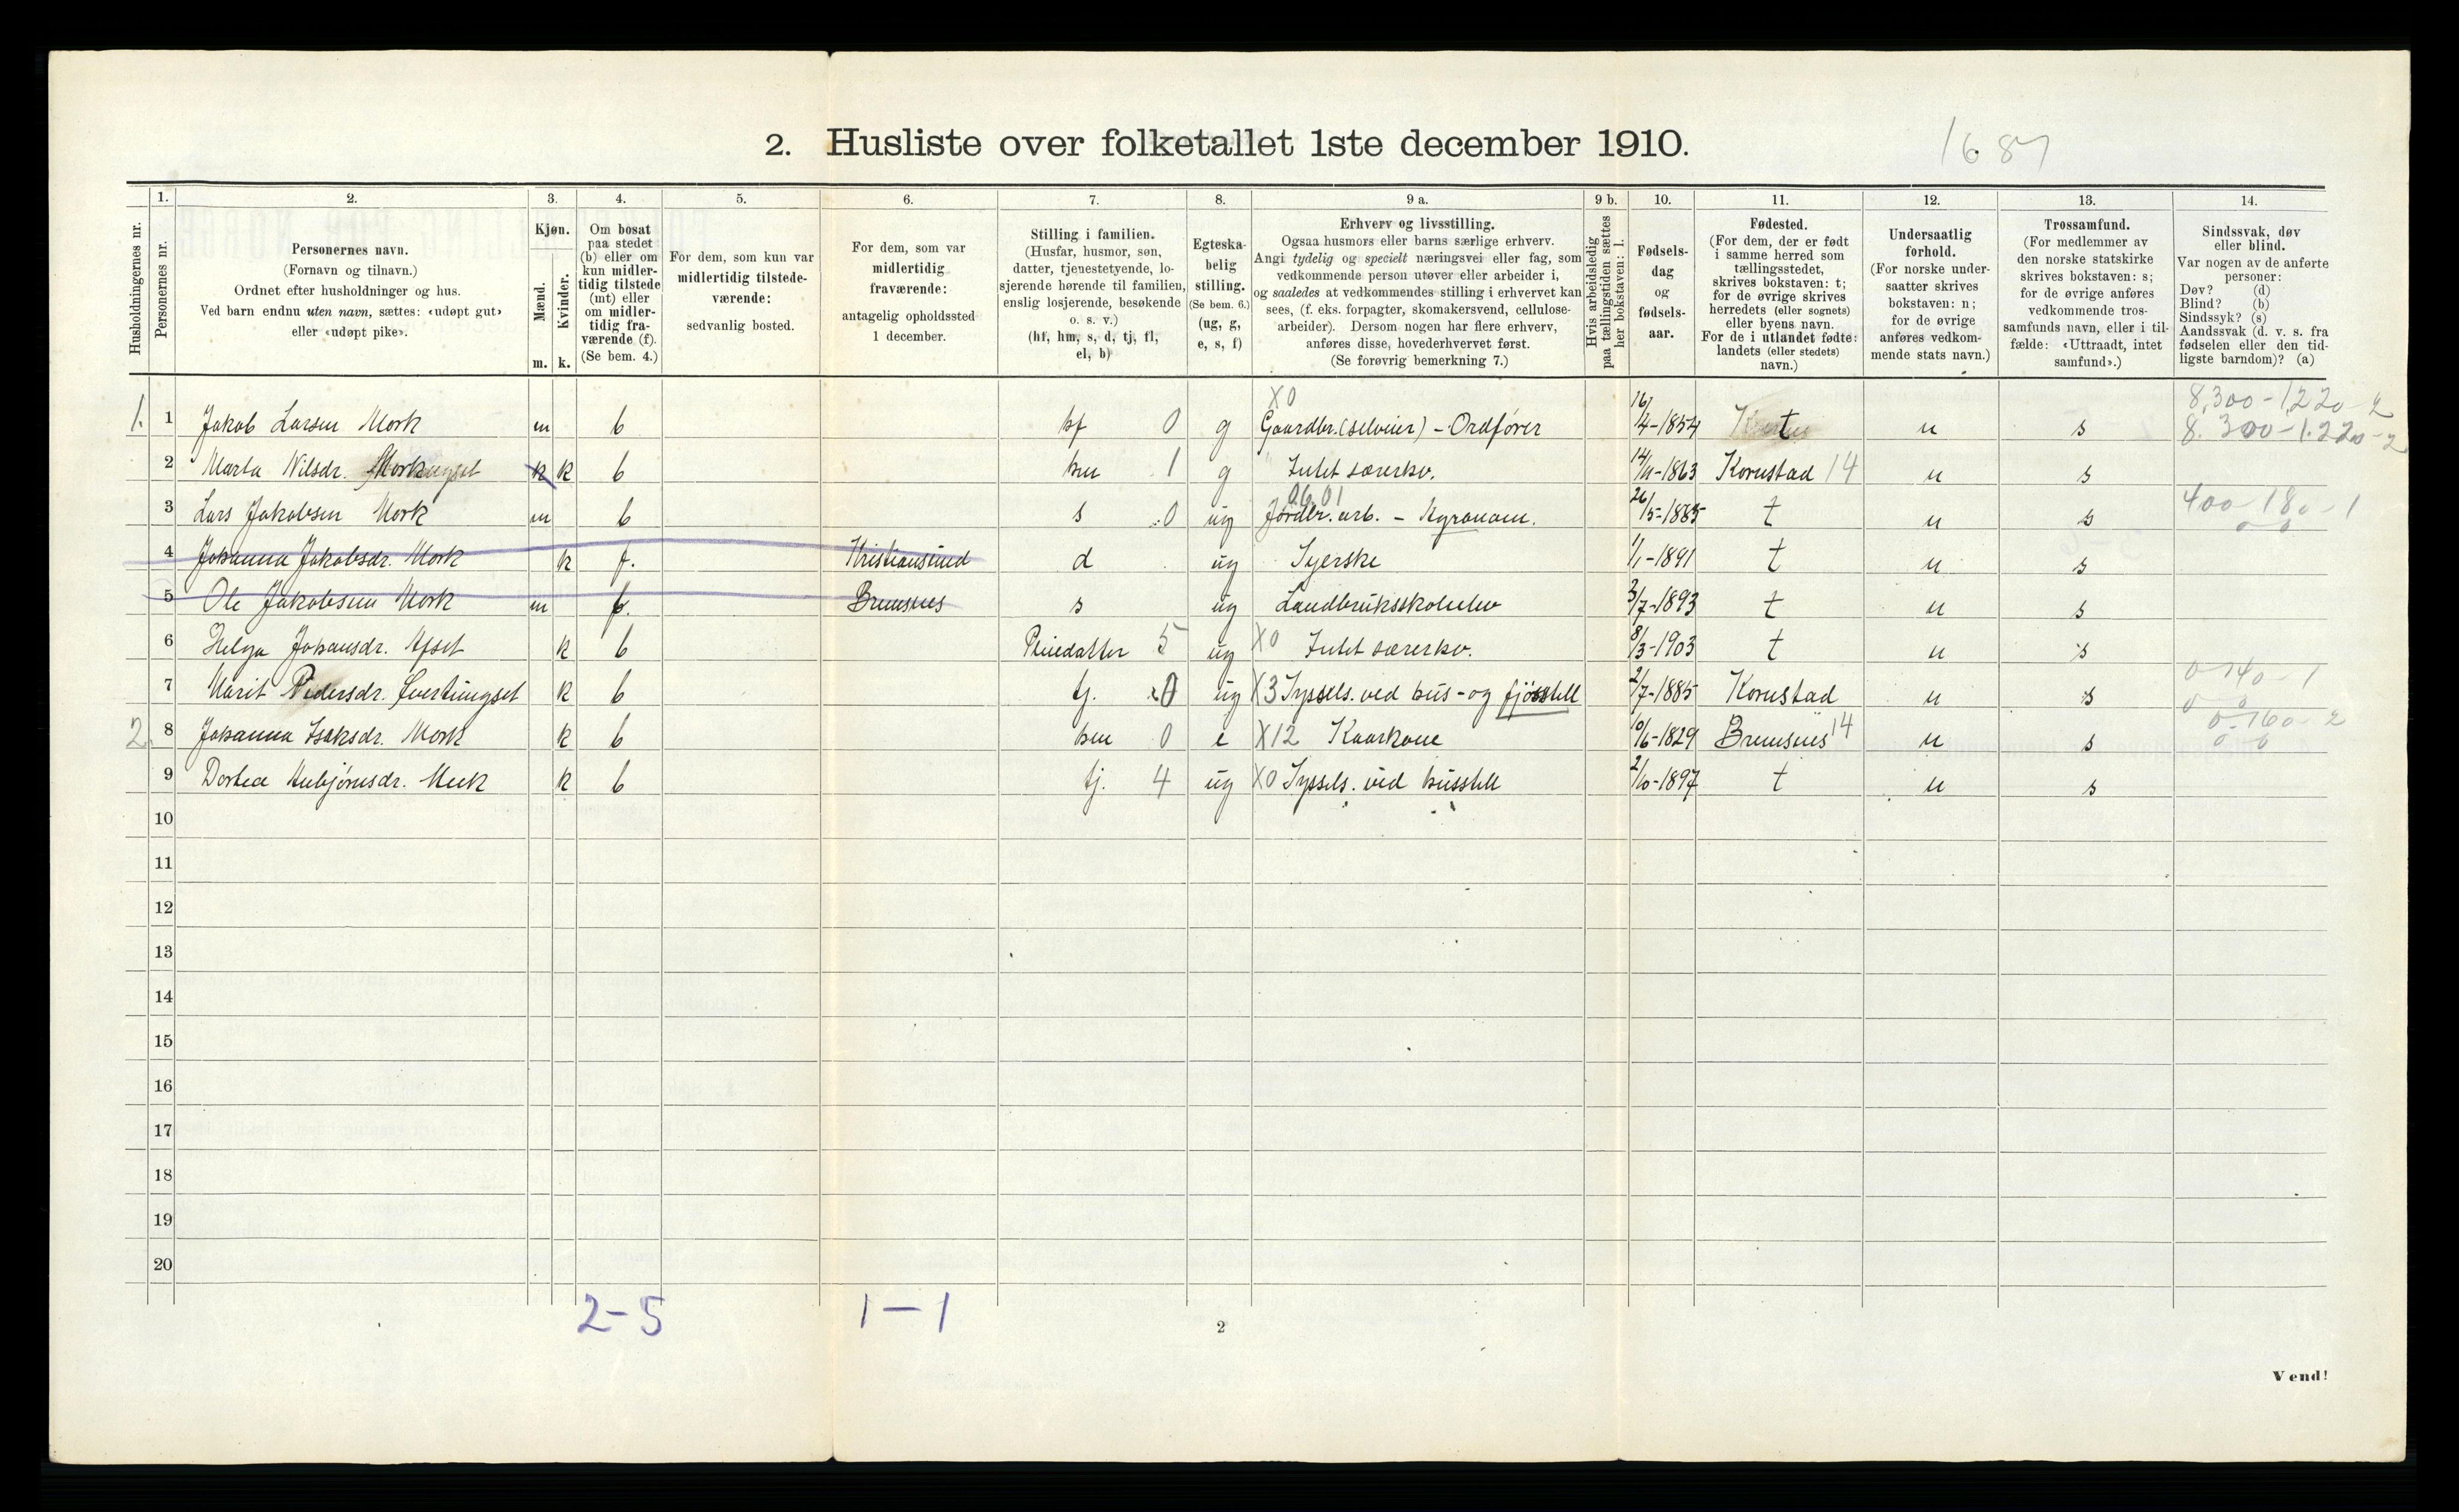 2. Husliste over folketallet 1ste december 1910.
1687
1. 2. 3. 4. 5. 6. 7. 8. 9 a. 9 b. 10. 11. 12. 13. 14.
Husholdningernes nr.
Personernes nr.
Personernes navn.
(Fornavn og tilnavn.)
Ordnet efter husholdninger og hus.
Ved barn endnu uten navn, sættes: «udøpt gut»
eller «udøpt pike».
Kjøn.
Mænd.
Kvinder.
m. k.
Om bosat
paa stedet
(b) eller om
kun midler-
tidig tilstede
(mt) eller
om midler-
tidig fra-
værende (f).
(Se bem. 4.)
For dem, som kun var
midlertidig tilstede-
værende:
sedvanlig bosted.
For dem, som var
midlertidig
fraværende:
antagelig opholdssted
1 december.
Stilling i familien.
(Husfar, husmor, søn,
datter, tjenestetyende, lo-
sjerende hørende til familien,
enslig losjerende, besøkende
o. s. v.)
(hf, hm, s, d, tj, fl,
el, b)
Egteska-
belig
stilling.
(Se bem. 6.)
(ug, g,
e, s, f)
Erhverv og livsstilling.
Ogsaa husmors eller barns særlige erhverv.
Angi tydelig og specielt næringsvei eller fag, som
vedkommende person utøver eller arbeider i,
og saaledes at vedkommendes stilling i erhvervet kan
sees, (f. eks. forpagter, skomakersvend, cellulose-
arbeider). Dersom nogen har flere erhverv,
anføres disse, hovederhvervet først.
(Se forøvrig bemerkning 7.)
Hvis arbeidsledig
paa tællingstiden sættes
her bokstaven: l.
Fødsels-
dag
og
fødsels-
aar.
Fødested.
(For dem, der er født
i samme herred som
tællingsstedet,
skrives bokstaven: t;
for de øvrige skrives
herredets (eller sognets)
eller byens navn.
For de i utlandet fødte:
landets (eller stedets)
navn.)
Undersaatlig
forhold.
(For norske under-
saatter skrives
bokstaven: n;
for de øvrige
anføres vedkom-
mende stats navn.)
Trossamfund.
(For medlemmer av
den norske statskirke
skrives bokstaven: s;
for de øvrige anføres
vedkommende tros-
samfunds navn, eller i til-
fælde: «Uttraadt, intet
samfund».)
Sindssvak, døv
eller blind.
Var nogen av de anførte
personer:
Døv? (d)
Blind? (b)
Sindssyk? (s)
Aandssvak (d. v. s. fra
fødselen eller den tid-
ligste barndom)? (a)
X0 8,300-1,220-2
1. 1 Jakob Larsen Mork m b hf 0 g Gaardbr. (selveier) - Ordfører 16/4-1854 t n s 8.300-1.220-2
2 Marta Nilsdr. Mork k k b hm 1 g Intet særerhv. 14/11-1863 Kornstad 14 n s
3 Lars Jakobsen Mork m b s 0 ug Jordbr. arb. - Agronom. 26/5-1885 t n s 400-180-1
4 Johanna Jakobsdr. Mork k f. Kristiansund d ug Syerske 1/1-1891 t n s
5 Ole Jakobsen Mork m f. Bremsnes s ug Landbruksskoleelev 3/7-1893 t n s
6 Helga Johansdr. Afset k b Pleiedatter 5 ug X0 Intet særerhv. 8/3-1903 t n s
7 Marit Pedersdr. Svertingset k b tj. 0 ug X3 Syssels. ved hus- og fjøsstell 2/7-1885 Kornstad n s 0-140-1
2. 8 Johanna Isaksdr. Mork k b hm 0 e X12 Kaarkone 10/6-1829 Bremsnes 14 n s 0-160-2
9 Dortea Anbjørnsdr. Meek k b tj. 4 ug X0 Syssels. ved husstell 2/10-1897 t n s
10
11
12
13
14
15
16
17
18
19
20
2-5 1-1
2
Vend!